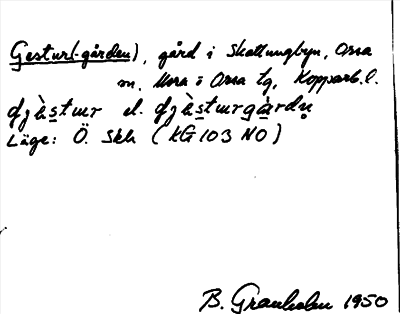 Gestur(-gården), gård i Skattungbyn, Orsa
m. Mora o Orsa tg, Kopparb.l.
djàstur el. djàsturgàrdṇ
Läge: Ö. Skh (KG 103 NO)
B. Granholm 1950